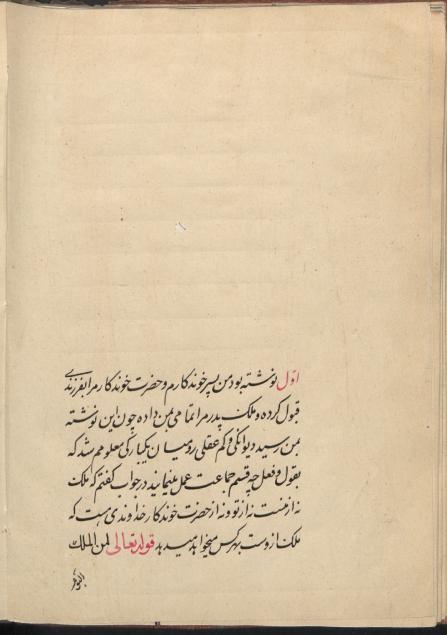 اول نوشته بود من پسر خوندکارم و حضرت خوندکار مرا بفرزندی
قبول کرده و ملک پدر مرا تمامی بمن داده چون این نوشته
بمن رسید دیوانکی و کم عقلی رومیان یکبارکی معلومم شد که
بقول و فعل چه قسم جماعت عمل مینمایند در جواب کفتم که ملک
نه از منست نه از تو و نه از حضرت خوندکار خداوندی هست که
ملک ازوست بهر کس میخواهد میدهد قوله تعالی لمن الملک
الیوم